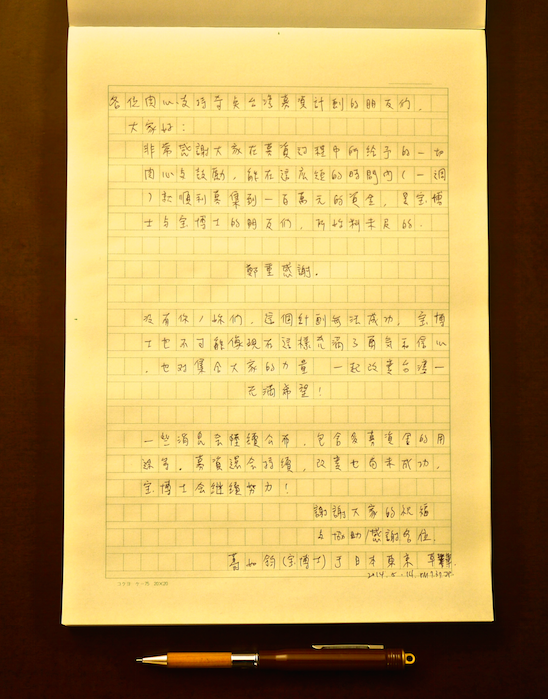 各位關心、支持奇貞台灣募資計劃的朋友們,
大家好:
非常感謝大家在募資過程中所給予的一切
關心與鼓勵,能在這麼短的時間內(一週
)就順利募集到一百萬元的資金,是宝博
士与宝博士的朋友們,所始料未及的。
鄭重感謝。
沒有你/妳們,這個計劃無法成功,宝博
士也不可能像現在這樣充滿了勇氣和信心
,也對集合大家的力量 一起改變台灣一
充滿希望!
一些消息會繼續公布,包含多募資金的用
途等。募資還會持續,改變也尚未成功,
宝博士会繼續努力!
謝謝大家的祝福
与協助/感謝各位。
葛如鈞(宝博士)于日本東京 草筆
2014.5.14